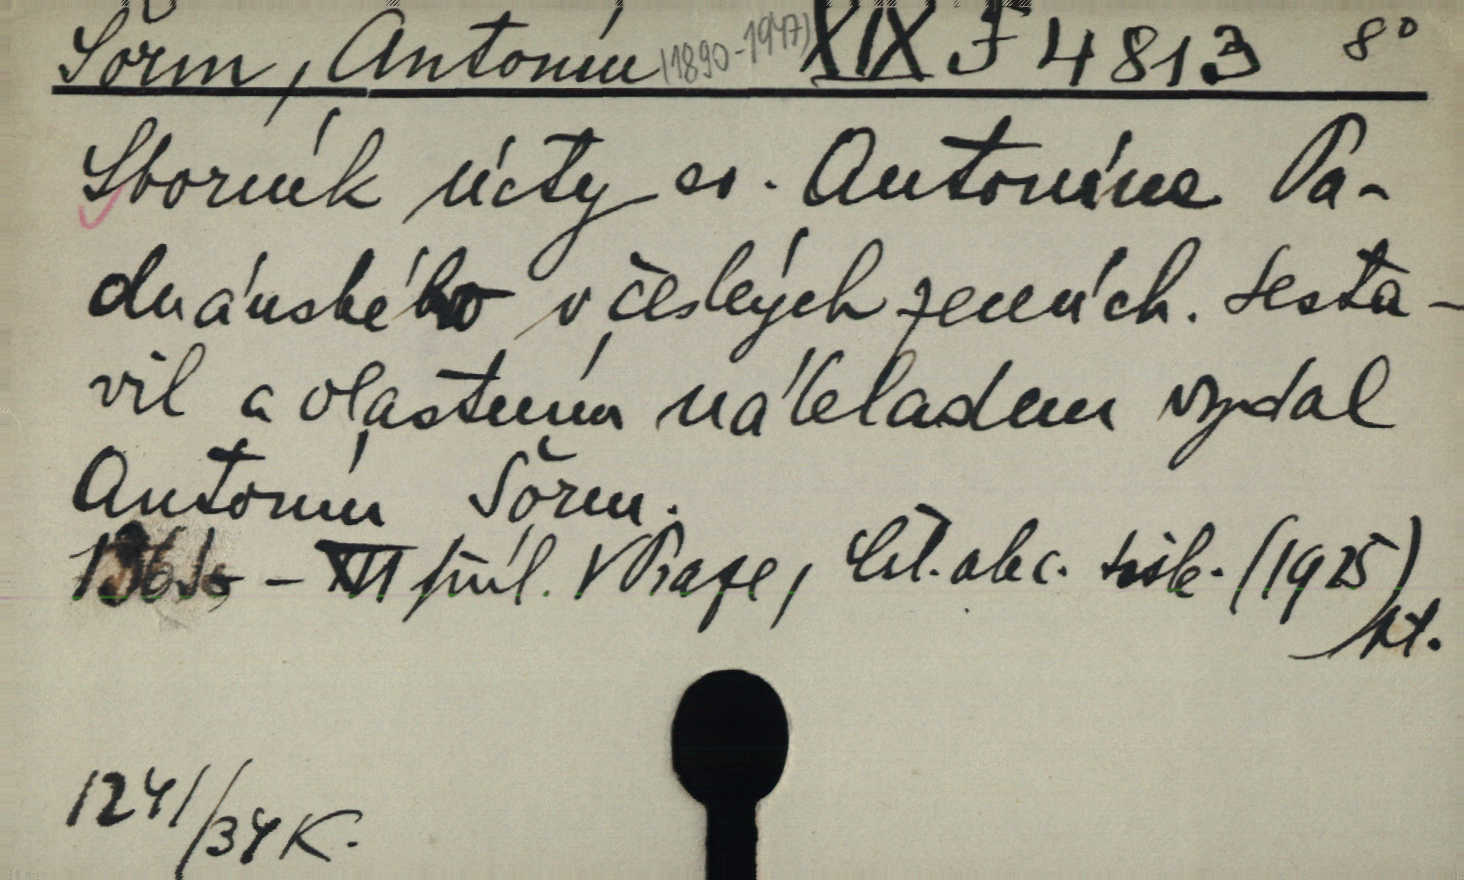 Šorm, Antonín (1890-1947) XIX F 4813 8°
Sborník úcty sv. Antonína Pa-
duánského v českých zemích. Sesta-
vil a vlastním nákladem vydal
Antonín Šorm.
- XII příl. V Praze, Cyr. (1925)
1241/34 K.